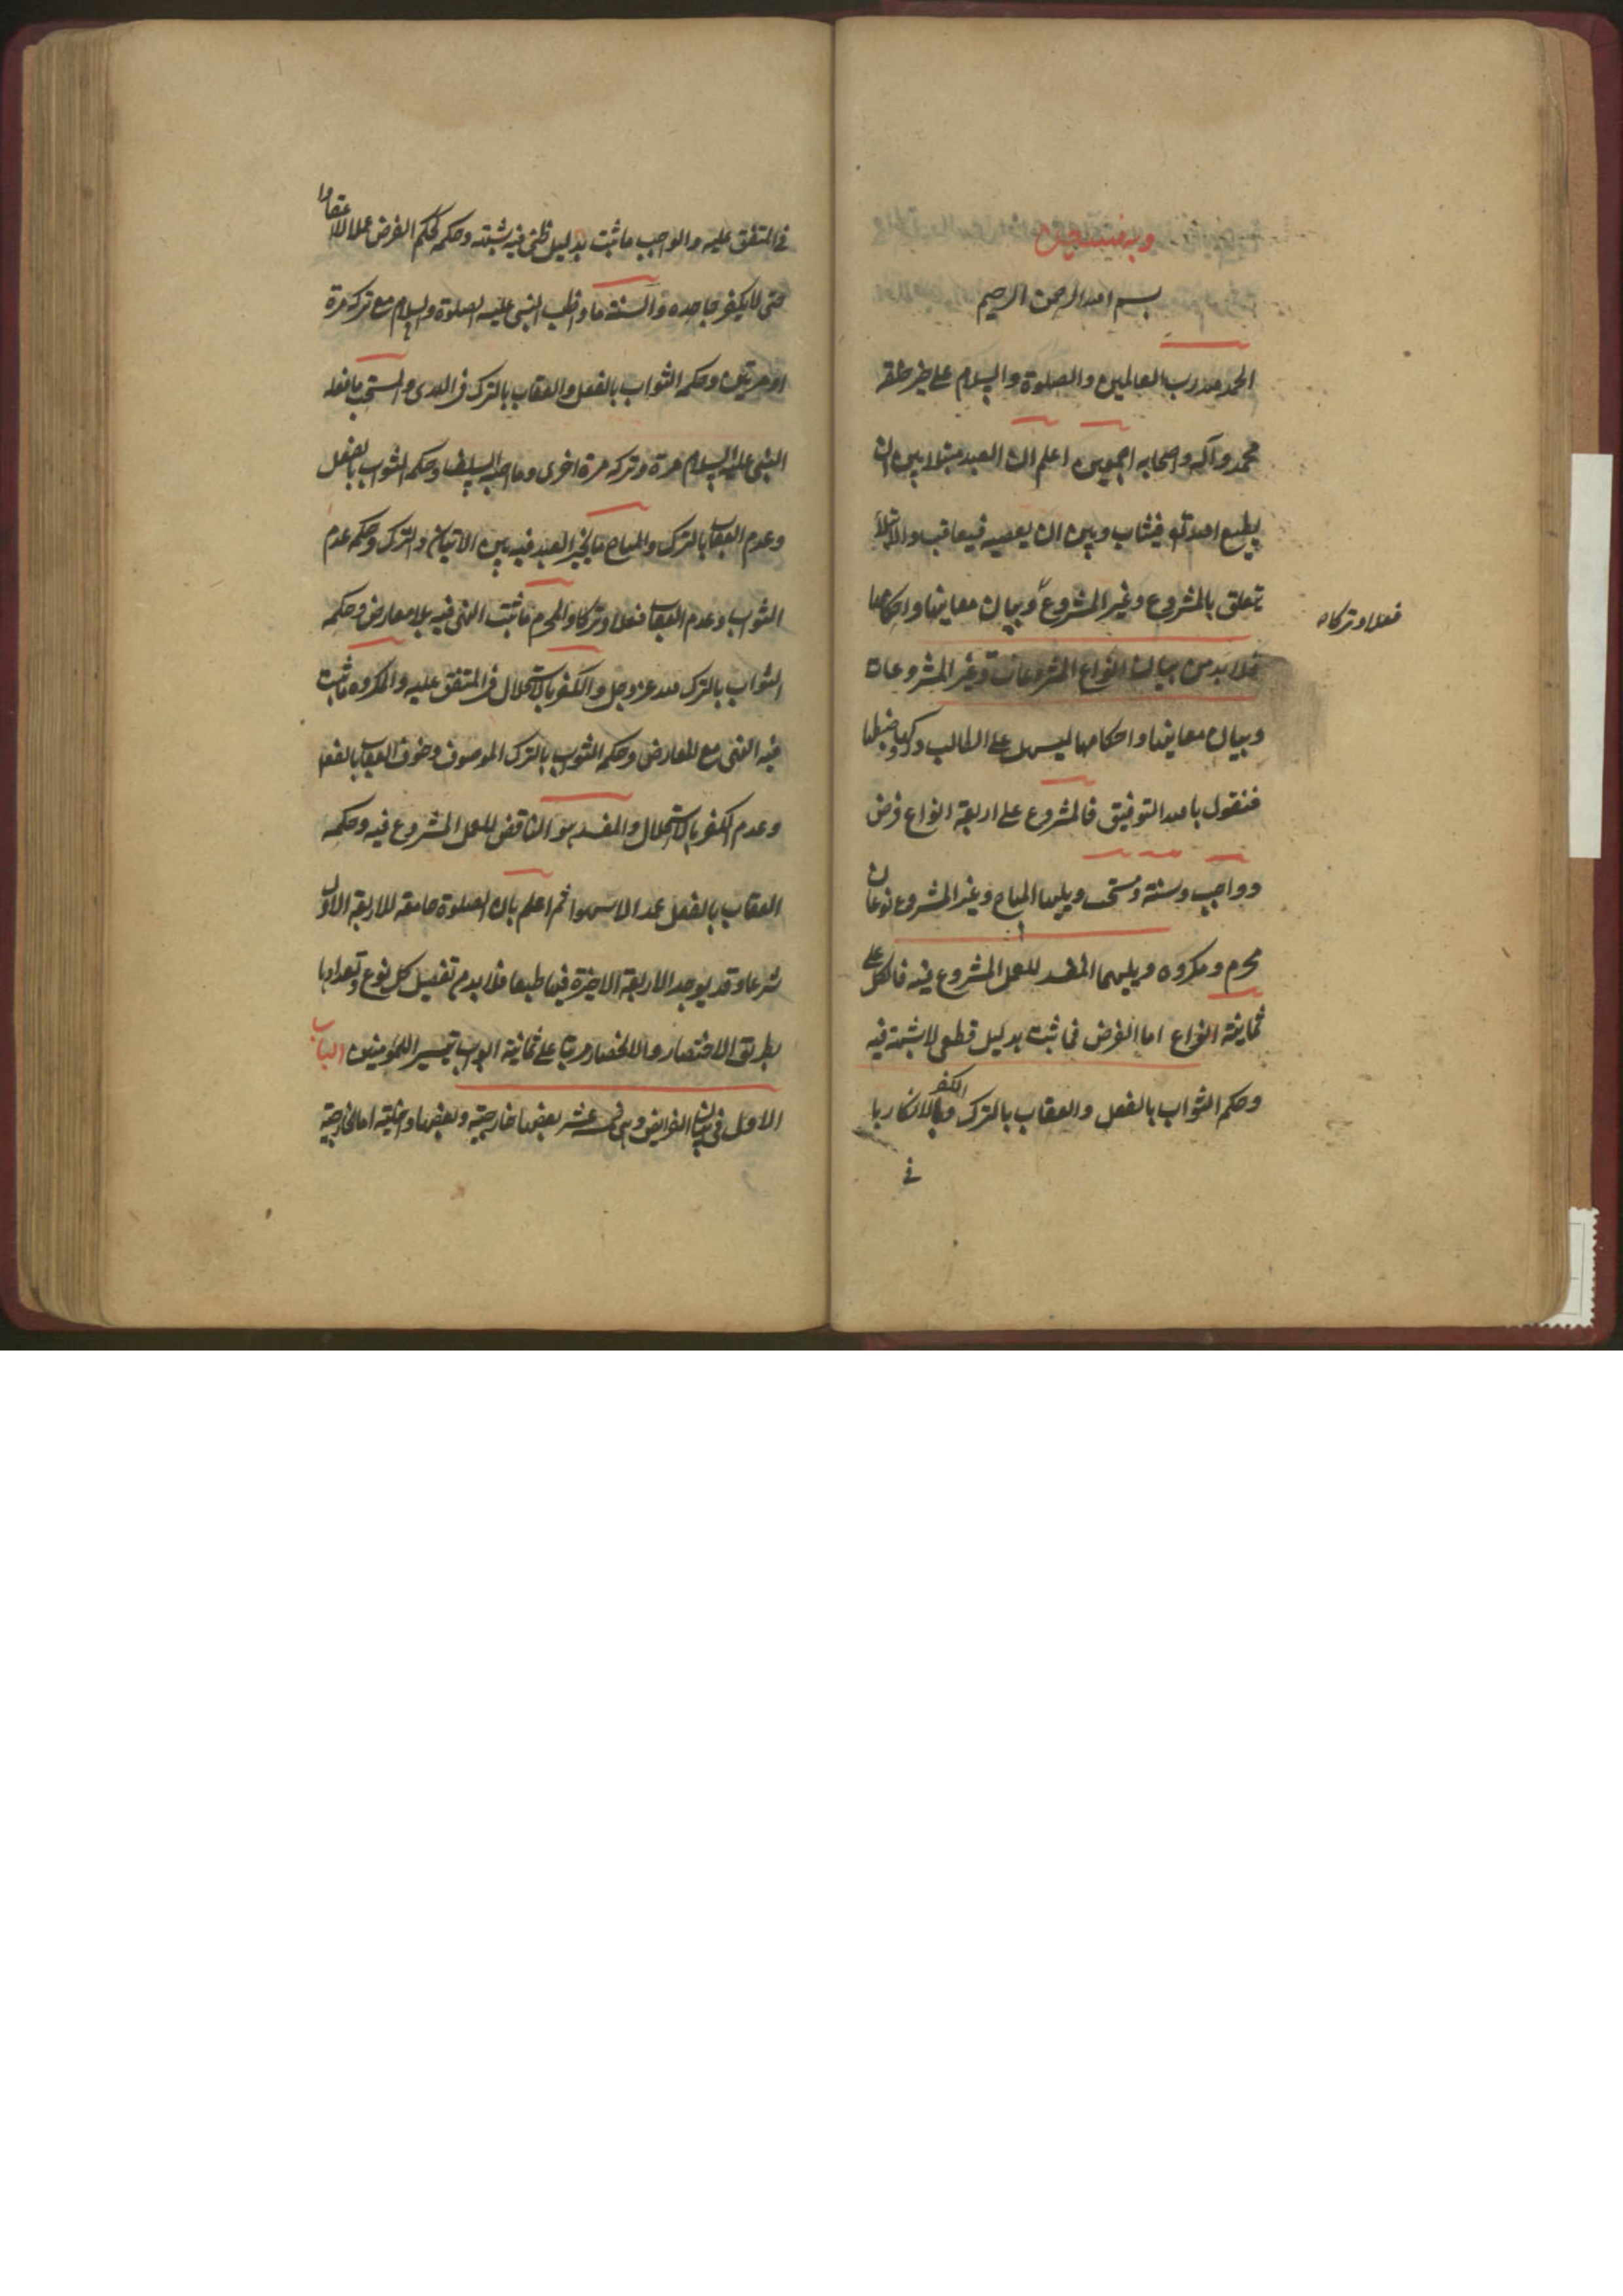 وبه نستعين
بسم الله الرحمن الرحيم
الحمد لله رب العالمين والصلوة والسلام على خير خلقه
محمد وآله واصحابه اجمعين اعلم ان العبد مبتلا بين ان
يطيع الله تع فيثاب وبين ان يعصيه فيعاقب والابتلاء
تعلق بالمشروع وغير المشروع وبيان معانيها واحكامها
فعلا وتركا
فلا بد من بيان انواع المشروعات وغير المشروعات
وبيان معانيها واحكامها ليسهل على الطالب دركها وضبطها
فنقول بالله التوفيق فالمشروع على اربعة انواع فرض
وواجب وسنة ومستحب ويليها المباح وغير المشروع نوعان
محرم ومكروه ويليهما المفسد للعمل المشروع فيه فالكل على
ثمانية انواع اما الفرض فما ثبت بدليل قطعي لا شبهة فيه
وحكم الثواب بالفعل والعقاب بالترك والكفر بالانكار بلا
في
في المتفق عليه والواجب ما ثبت بدليل ظني فيه شبهة وحكمه كحكم الفرض عملا لا اعتقادا
حتى لا يكفر جاحده والسنة ما واظب النبي عليه الصلوة والسلام مع تركه مرة
او مرتين وحكمه الثواب بالفعل والعقاب بالترك في الهدى والمستحب ما فعله
النبي عليه السلام مرة وتركه مرة اخرى وما احبه السلف وحكمه الثواب بالفعل
وعدم العقاب بالترك والمباح ما يخير العبد فيه بين الاتيان والترك وحكمه عدم
الثواب وعدم العقاب فعلا وتركا والمحرم ما ثبت النهي فيه بلا معارض وحكمه
الثواب بالترك لله عز وجل والكفر بالاستحلال في المتفق عليه والمكروه ما ثبت
فيه النهي مع المعارض وحكمه الثواب بالترك الموصوف وخوف العقاب بالفعل
وعدم الكفر بالاستحلال والمفسد هو الناقض للعمل المشروع فيه وحكمه
العقاب بالفعل عمدا لا سهوا ثم اعلم بان الصلوة جامعة للاربعة الاول
شرعا وقد يوجد الاربعة الاخيرة فيها طبعا فلا بد من تفصيل كل نوع وتعدادها
بطريق الاختصار والانحصار مرتبا على ثمانية ابواب تيسيرا للمؤمنين الباب
الاول في بيان الفرايض وهي عشر بعضها خارجية وبعضها داخلية اما الخارجية